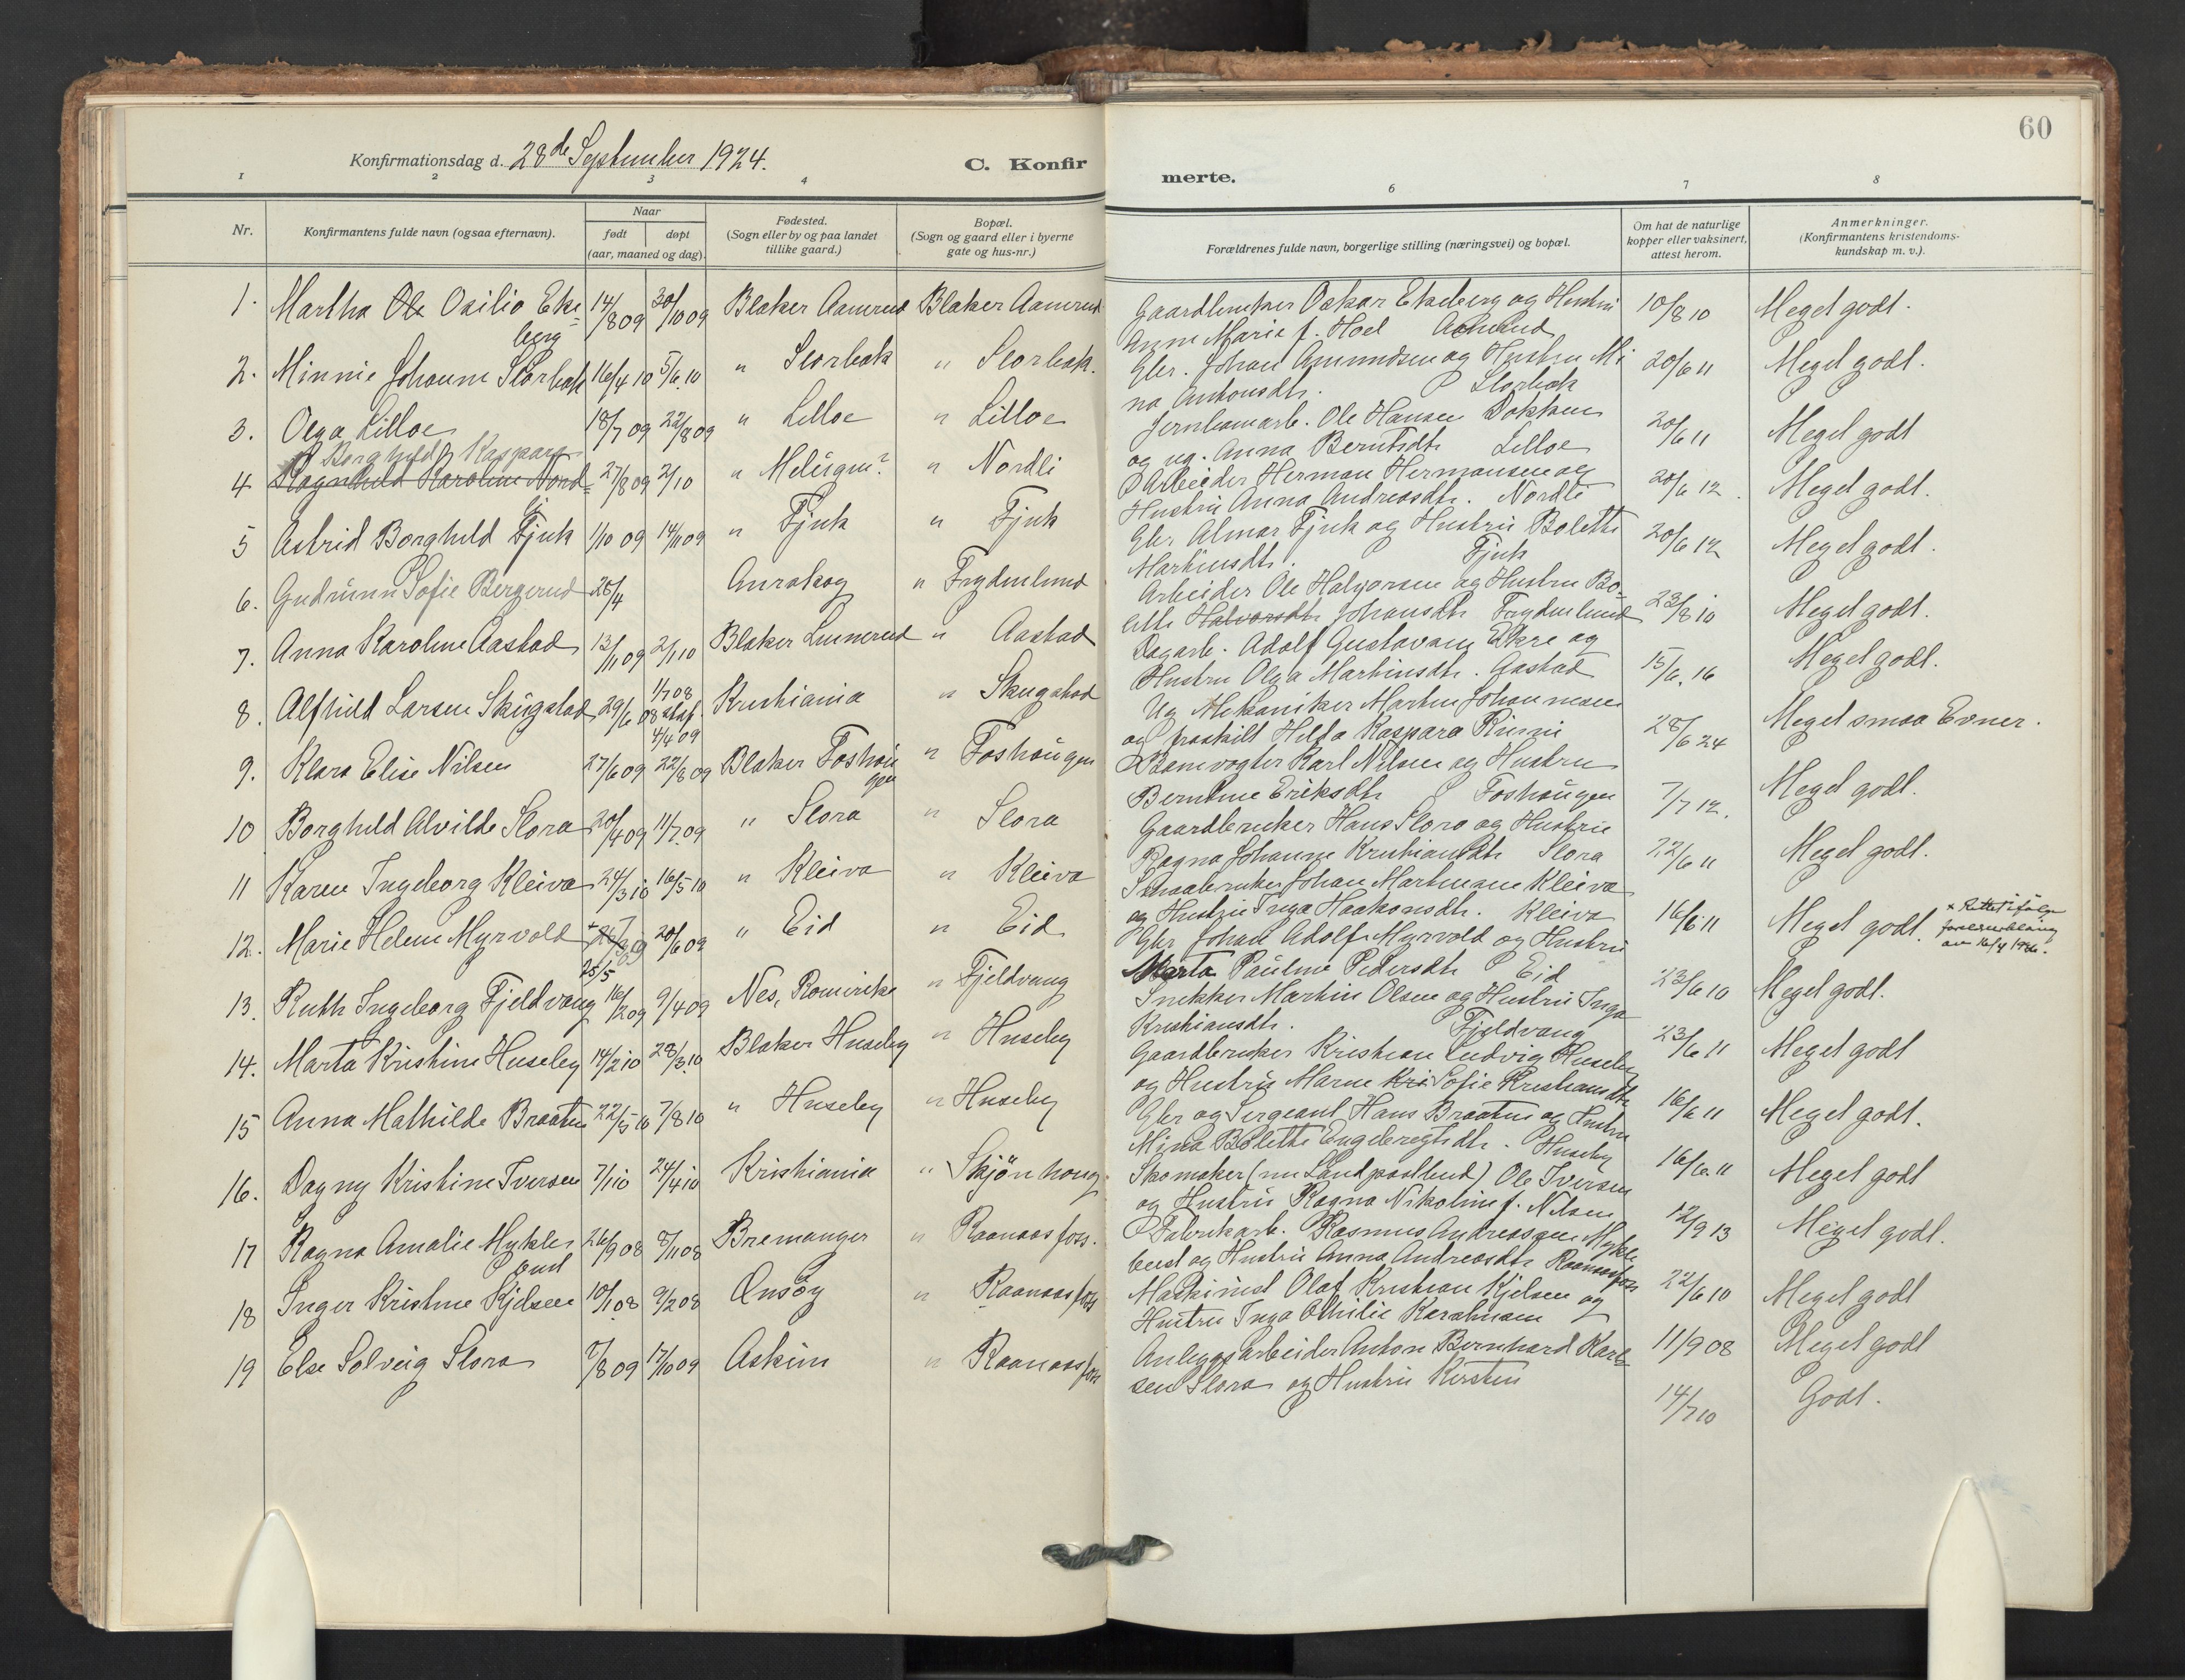 60
Konfirmationsdag d. 28de September 1924.
C. Konfirmerte.
1 2 3 4 6 7 8
Nr.
Konfirmantens fulde navn (ogsaa efternavn).
Naar
født døpt
(aar, maaned og dag)
Fødested.
(Sogn eller by og paa landet
tillike gaard.)
Bopæl.
(Sogn og gaard eller i byerne
gate og hus-nr.)
Forældrenes fulde navn, borgerlige stilling (næringsvei) og bopæl.
Om hat de naturlige
kopper eller vaksinert,
attest herom.
Anmerkninger.
(Konfirmantens kristendoms-
kundskap m. v.).
1. Martha Ole Osilie Eke= 14/8 09 30/10 09 Blaker Aamerud Blaker Aamerud Gaardbruker Oskar Ekeberg og Hustru 10/8 10 Meget godt.
berg Anne Marie f. Hoel Aamerud
2. Minnie Johanne Slorbak 16/4 10 5/6 10 " Slorbak " Slorbak. Gbr. Johan Amundsen og Hustru Mi 20/6 11 Meget godt.
na Antonsdtr. Slorbak
3. Olga Lilloe 18/7 09 22/8 09 " Lilloe " Lilloe Jernbanearb. Ole Hansen Dokken 20/6 11 Meget godt
og ug. Anna Berntsdtr Lilloe
Borghild Kaspara
4 Ragnhild Karoline Nord= 27/8 09 2/10 " " Nordli Arbeider Herman Hermansen og 20/6 12. Meget godt.
li Hustru Anna Andreasdtr. Nordli
5 Astrid Borghild Fjuk 1/10 09 14/11 09 " Fjuk " Fjuk Gbr. Almar Fjuk og Hustru Bolette 20/6 12 Meget godt.
Martinsdtr. Fjuk
6. Gudrunn Sofie Bergerud 28/4 Aurskog " Frydenlund Arbeider Ole Halvorsen og Hustru Bo- 23/8 10 Meget godt.
lette Halvorsdtr Johansdtr Frydenlund
7. Anna Karoline Aastad 13/11 09 2/1 10 Blaker Linnerud " Aastad Dagarb. Adolf Gustavsen Ekre og 15/6. 16 Meget godt.
Hustru Olga Martinsdtr. Aastad
8. Alfhild Larsen Skugstad 29/6 08 1/7 08 Kristiania " Skugstad Ug Mekaniker Martin Johannesen 28/6 24 Meget smaa Evner.
staf. 4/4 09
og fraskilt Hilda Kaspara
9. Klara Elise Nilsen 27/6 09 22/8 09 Blaker Foshau " Foshaugen Banevogter Karl Nilsen og Hustru 7/7 12. Meget godt.
gen Berntine Eriksdtr Foshaugen
10 Borghild Alvilde Slora 20/4 09 11/7 09 " Slora " Slora Gaardbruker Hans Slora og Hustru 22/6 11 Meget godt.
Ragna Johanne Kristiansdtr Slora
11 Karen Ingeborg Kleiva 24/3 10 16/5 10 " Kleiva " Kleiva Smaabruker Johan Martinsen Kleiva 16/6 11 Meget godt.
og Hustru Inga Haakonsdtr. Kleiva
12. Marie Helene Myrvold + 26/3 09 20/6 09 " Eid " Eid Gbr Johan Adolf Myrvold og Hustru 23/6 10 Meget godt.
25/5
x Rettet ifølge
av 16/4 1986.
Marta Pauline Pedersdtr Eid
13. Ruth Ingeborg Fjeldvang 16/2 09 9/4 09 Nes, Romerike " Fjeldvang Snekker Martin Olsen og Hustru Inga 23/6 11 Meget godt
Kristiansdtr. Fjeldvang
14. Marta Kristine Huseby 14/2 10 28/3 10 Blaker Huseby " Huseby Gaardbruker Kristian Ludvig Huseby 16/6 11 Meget godt.
og Hustru Maren Kri Sofie Kristiansdtr
15 Anna Mathilde Braaten 22/5 10 7/8 10 " Huseby " Huseby Gbr og Sergeant Hans Braaten og Hustru 16/6 11 Meget godt
Mina Bolette Engebregtsdtr. Huseby
16. Dagny Kristine Iversen 7/1 10 24/4 10 Kristiania " Skjønhaug. Skomaker (nu Landpostbud) Ole Iversen 12/9 13 Meget godt.
og Hustru Ragna Nikoline f. Nilsen
17 Ragna Amalie Mykle 26/9 08 8/11 08 Bremanger " Raanaasfoss. Fabrikarb. Rasmus Andreassen Mykle 22/6 10 Meget godt
bust bust og Hustru Anna Andreasdtr Raanaasfoss
18 Inger Kristine Kjelsen 10/1 08 9/2 08 Onsøy " Raanaasfoss Maskinist Olaf Kristian Kjelsen og 11/9 08 Meget godt
Hustru Inga Othilie
19 Else Solveig Slora 7/8 09 17/10 09 Askim " Raanaasfoss Anlegsarbeider Anton Bernhard Karl- 14/7 10 Godt.
sen Slora og Hustru Kirsten